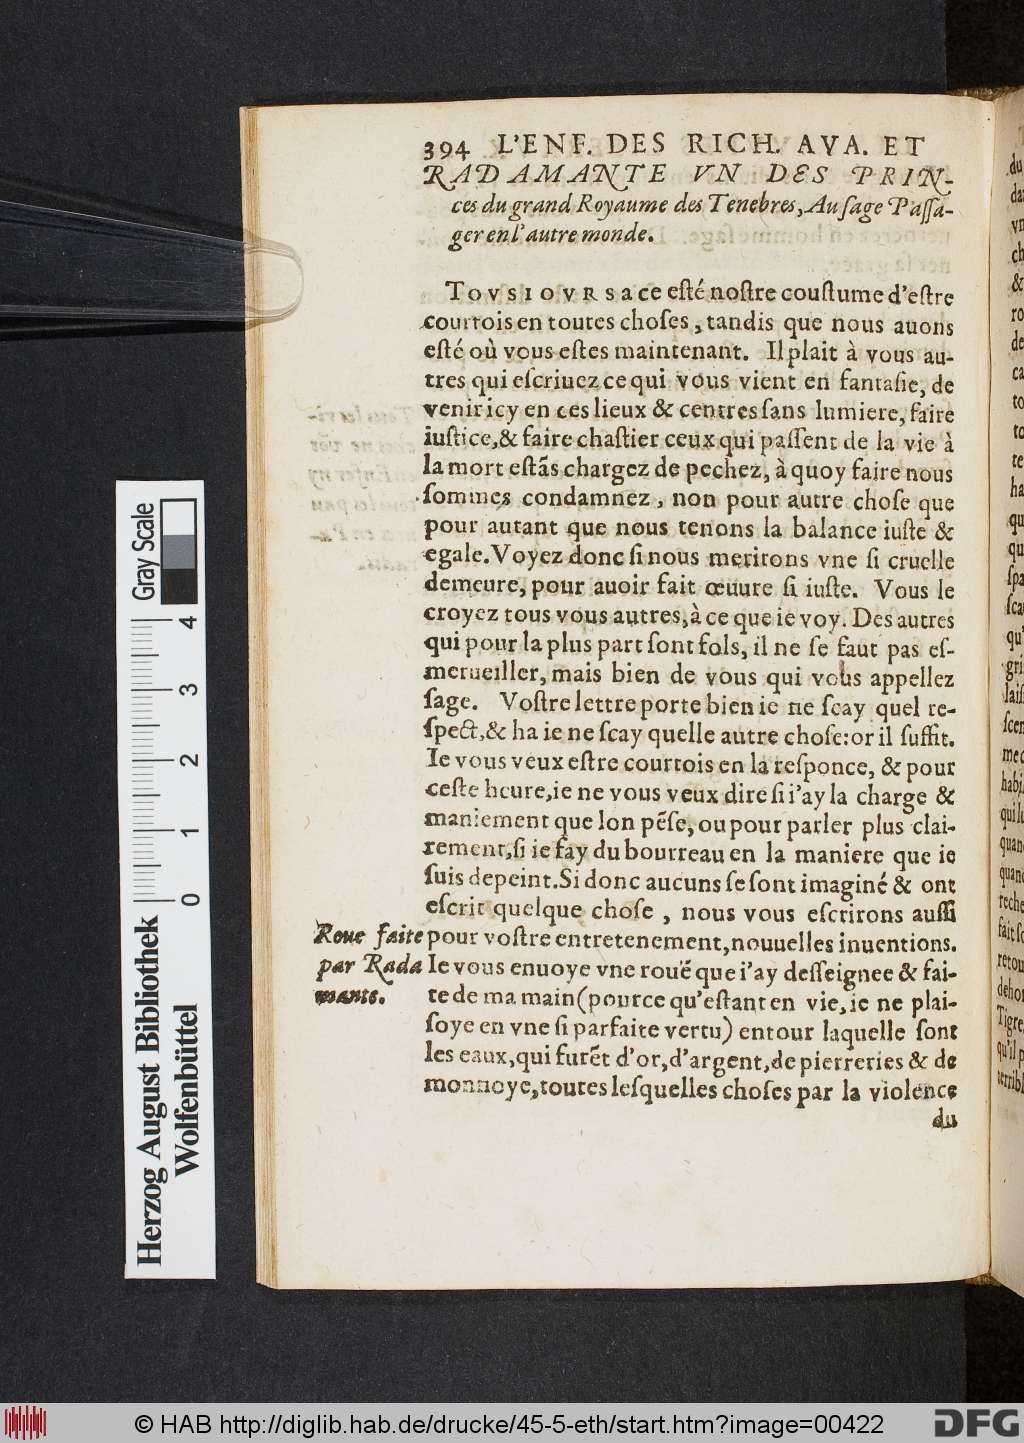 394 L'ENF. DES RICH. AVA. ET
RADAMANTE VN DES PRIN-
ces du grand Royaume des Tenebres, Au ſage Paſſa-
ger en l'autre monde.
TOVSIOVRS a ce eſté noſtre couſtume d'eſtre
courtois en toutes choſes, tandis que nous auons
eſté où vous eſtes maintenant. Il plait à vous au-
tres qui eſcriuez ce qui vous vient en fantaſie, de
venir icy en ces lieux & centres ſans lumiere, faire
iuſtice, & faire chaſtier ceux qui paſſent de la vie à
la mort eſtãs chargez de pechez, à quoy faire nous
ſommes condamnez, non pour autre choſe que
pour autant que nous tenons la balance iuſte &
egale. Voyez donc ſi nous meritons vne ſi cruelle
demeure, pour auoir fait œuure ſi iuſte. Vous le
croyez tous vous autres, à ce que ie voy. Des autres
qui pour la plus part ſont fols, il ne ſe faut pas eſ-
merueiller, mais bien de vous qui vous appellez
ſage. Voſtre lettre porte bien ie ne ſcay quel re-
ſpect, & ha ie ne ſcay quelle autre choſe: or il ſuffit.
Ie vous veux eſtre courtois en la reſponce, & pour
ceſte heure, ie ne vous veux dire ſi i'ay la charge &
maniement que lon pẽſe, ou pour parler plus clai-
rement, ſi ie fay du bourreau en la maniere que ie
ſuis depeint. Si donc aucuns ſe ſont imaginé & ont
eſcrit quelque choſe, nous vous eſcrirons auſſi
pour voſtre entretenement, nouuelles inuentions.
Ie vous enuoye vne rouë que i'ay deſſeignee & fai-
te de ma main (pource qu'eſtant en vie, ie ne plai-
ſoye en vne ſi parfaite vertu) entour laquelle ſont
les eaux, qui furẽt d'or, d'argent, de pierreries & de
monnoye, toutes leſquelles choſes par la violence
du
Roue faite
par Rada
mante.
Gray Scale
0 1 2 3 4
Herzog August Bibliothek
Wolfenbüttel
© HAB http://diglib.hab.de/drucke/45-5-eth/start.htm?image=00422
DFG